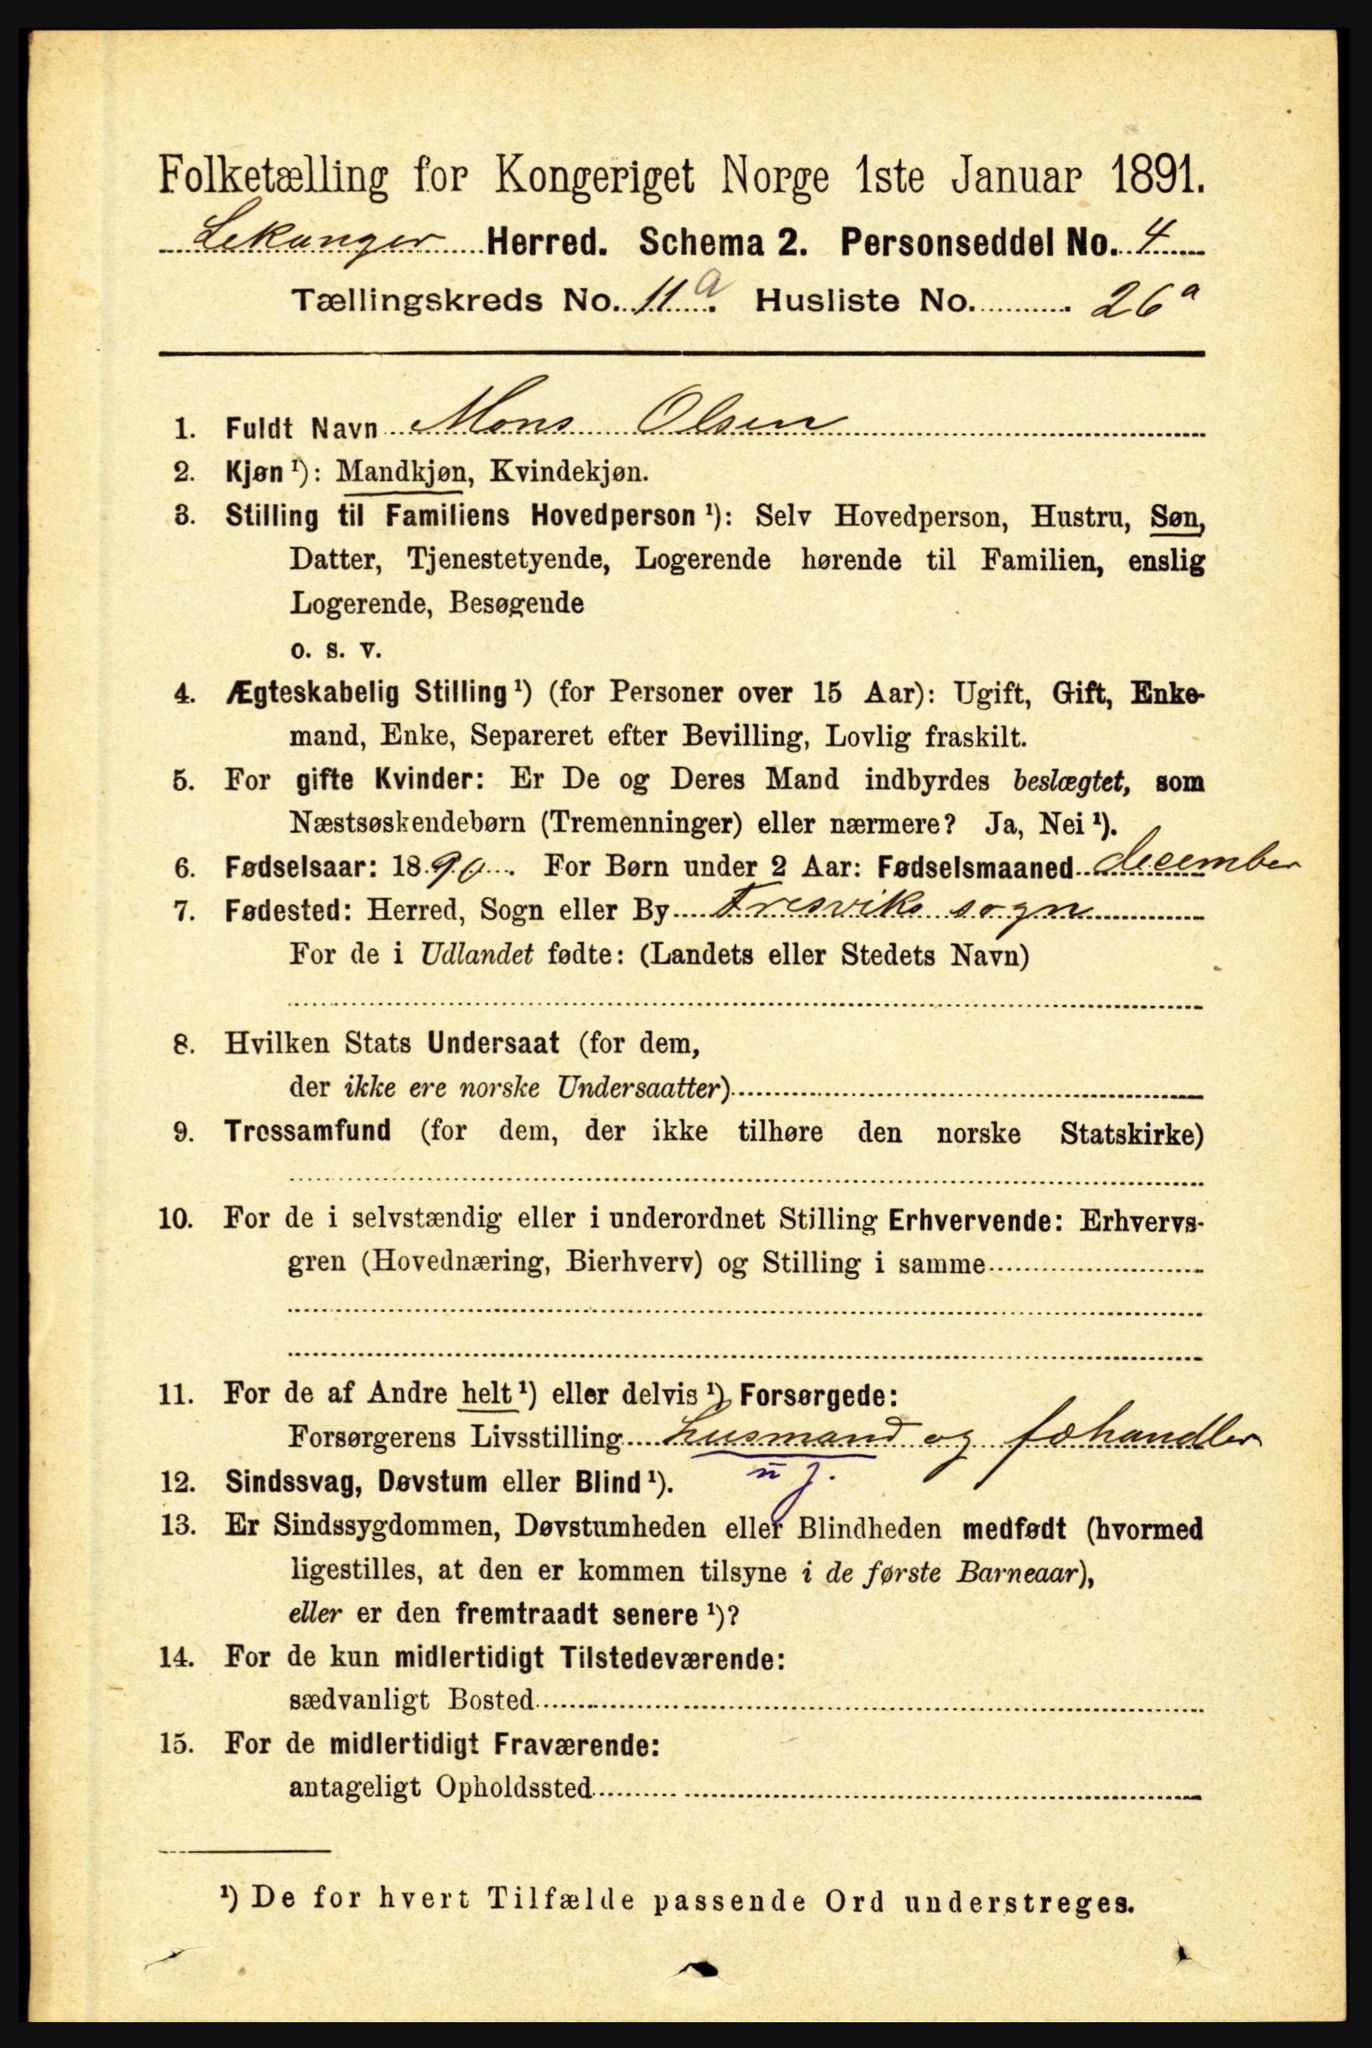 Folketælling for Kongeriget Norge 1ste Januar 1891.
Lekanger Herred. Schema 2. Personseddel No. 4
Tællingskreds No. 11 a. Husliste No. 26 a
1. Fuldt Navn Mons Olsen
2. Kjøn ¹): Mandkjøn, Kvindekjøn.
3. Stilling til Familiens Hovedperson ¹): Selv Hovedperson, Hustru, Søn,
Datter, Tjenestetyende, Logerende hørende til Familien, enslig
Logerende, Besøgende
o. s. v.
4. Ægteskabelig Stilling ¹) (for Personer over 15 Aar): Ugift, Gift, Enke-
mand, Enke, Separeret efter Bevilling, Lovlig fraskilt.
5. For gifte Kvinder: Er De og Deres Mand indbyrdes beslægtet, som
Næstsøskendebørn (Tremenninger) eller nærmere? Ja, Nei ¹).
6. Fødselsaar: 1890. For Børn under 2 Aar: Fødselsmaaned december
7. Fødested: Herred, Sogn eller By Fresviks sogn
For de i Udlandet fødte: (Landets eller Stedets Navn)
8. Hvilken Stats Undersaat (for dem,
der ikke ere norske Undersaatter)
9. Trossamfund (for dem, der ikke tilhøre den norske Statskirke)
10. For de i selvstændig eller i underordnet Stilling Erhvervende: Erhvervs-
gren (Hovednæring, Bierhverv) og Stilling i samme
11. For de af Andre helt ¹) eller delvis ¹) Forsørgede:
Forsørgerens Livsstilling Husmand og fæhandler
12. Sindssvag, Døvstum eller Blind ¹). u j.
13. Er Sindssygdommen, Døvstumheden eller Blindheden medfødt (hvormed
ligestilles, at den er kommen tilsyne i de første Barneaar),
eller er den fremtraadt senere ¹)?
14. For de kun midlertidigt Tilstedeværende:
sædvanligt Bosted
15. For de midlertidigt Fraværende:
antageligt Opholdssted
¹) De for hvert Tilfælde passende Ord understreges.